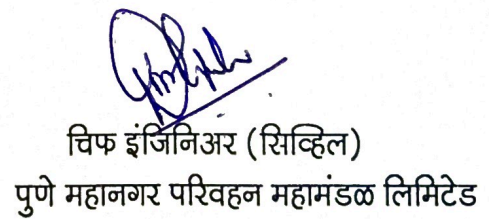 चिफ इंजिनिअर (सिव्हिल)
पुणे महानगर परिवहन महामंडळ लिमिटेड